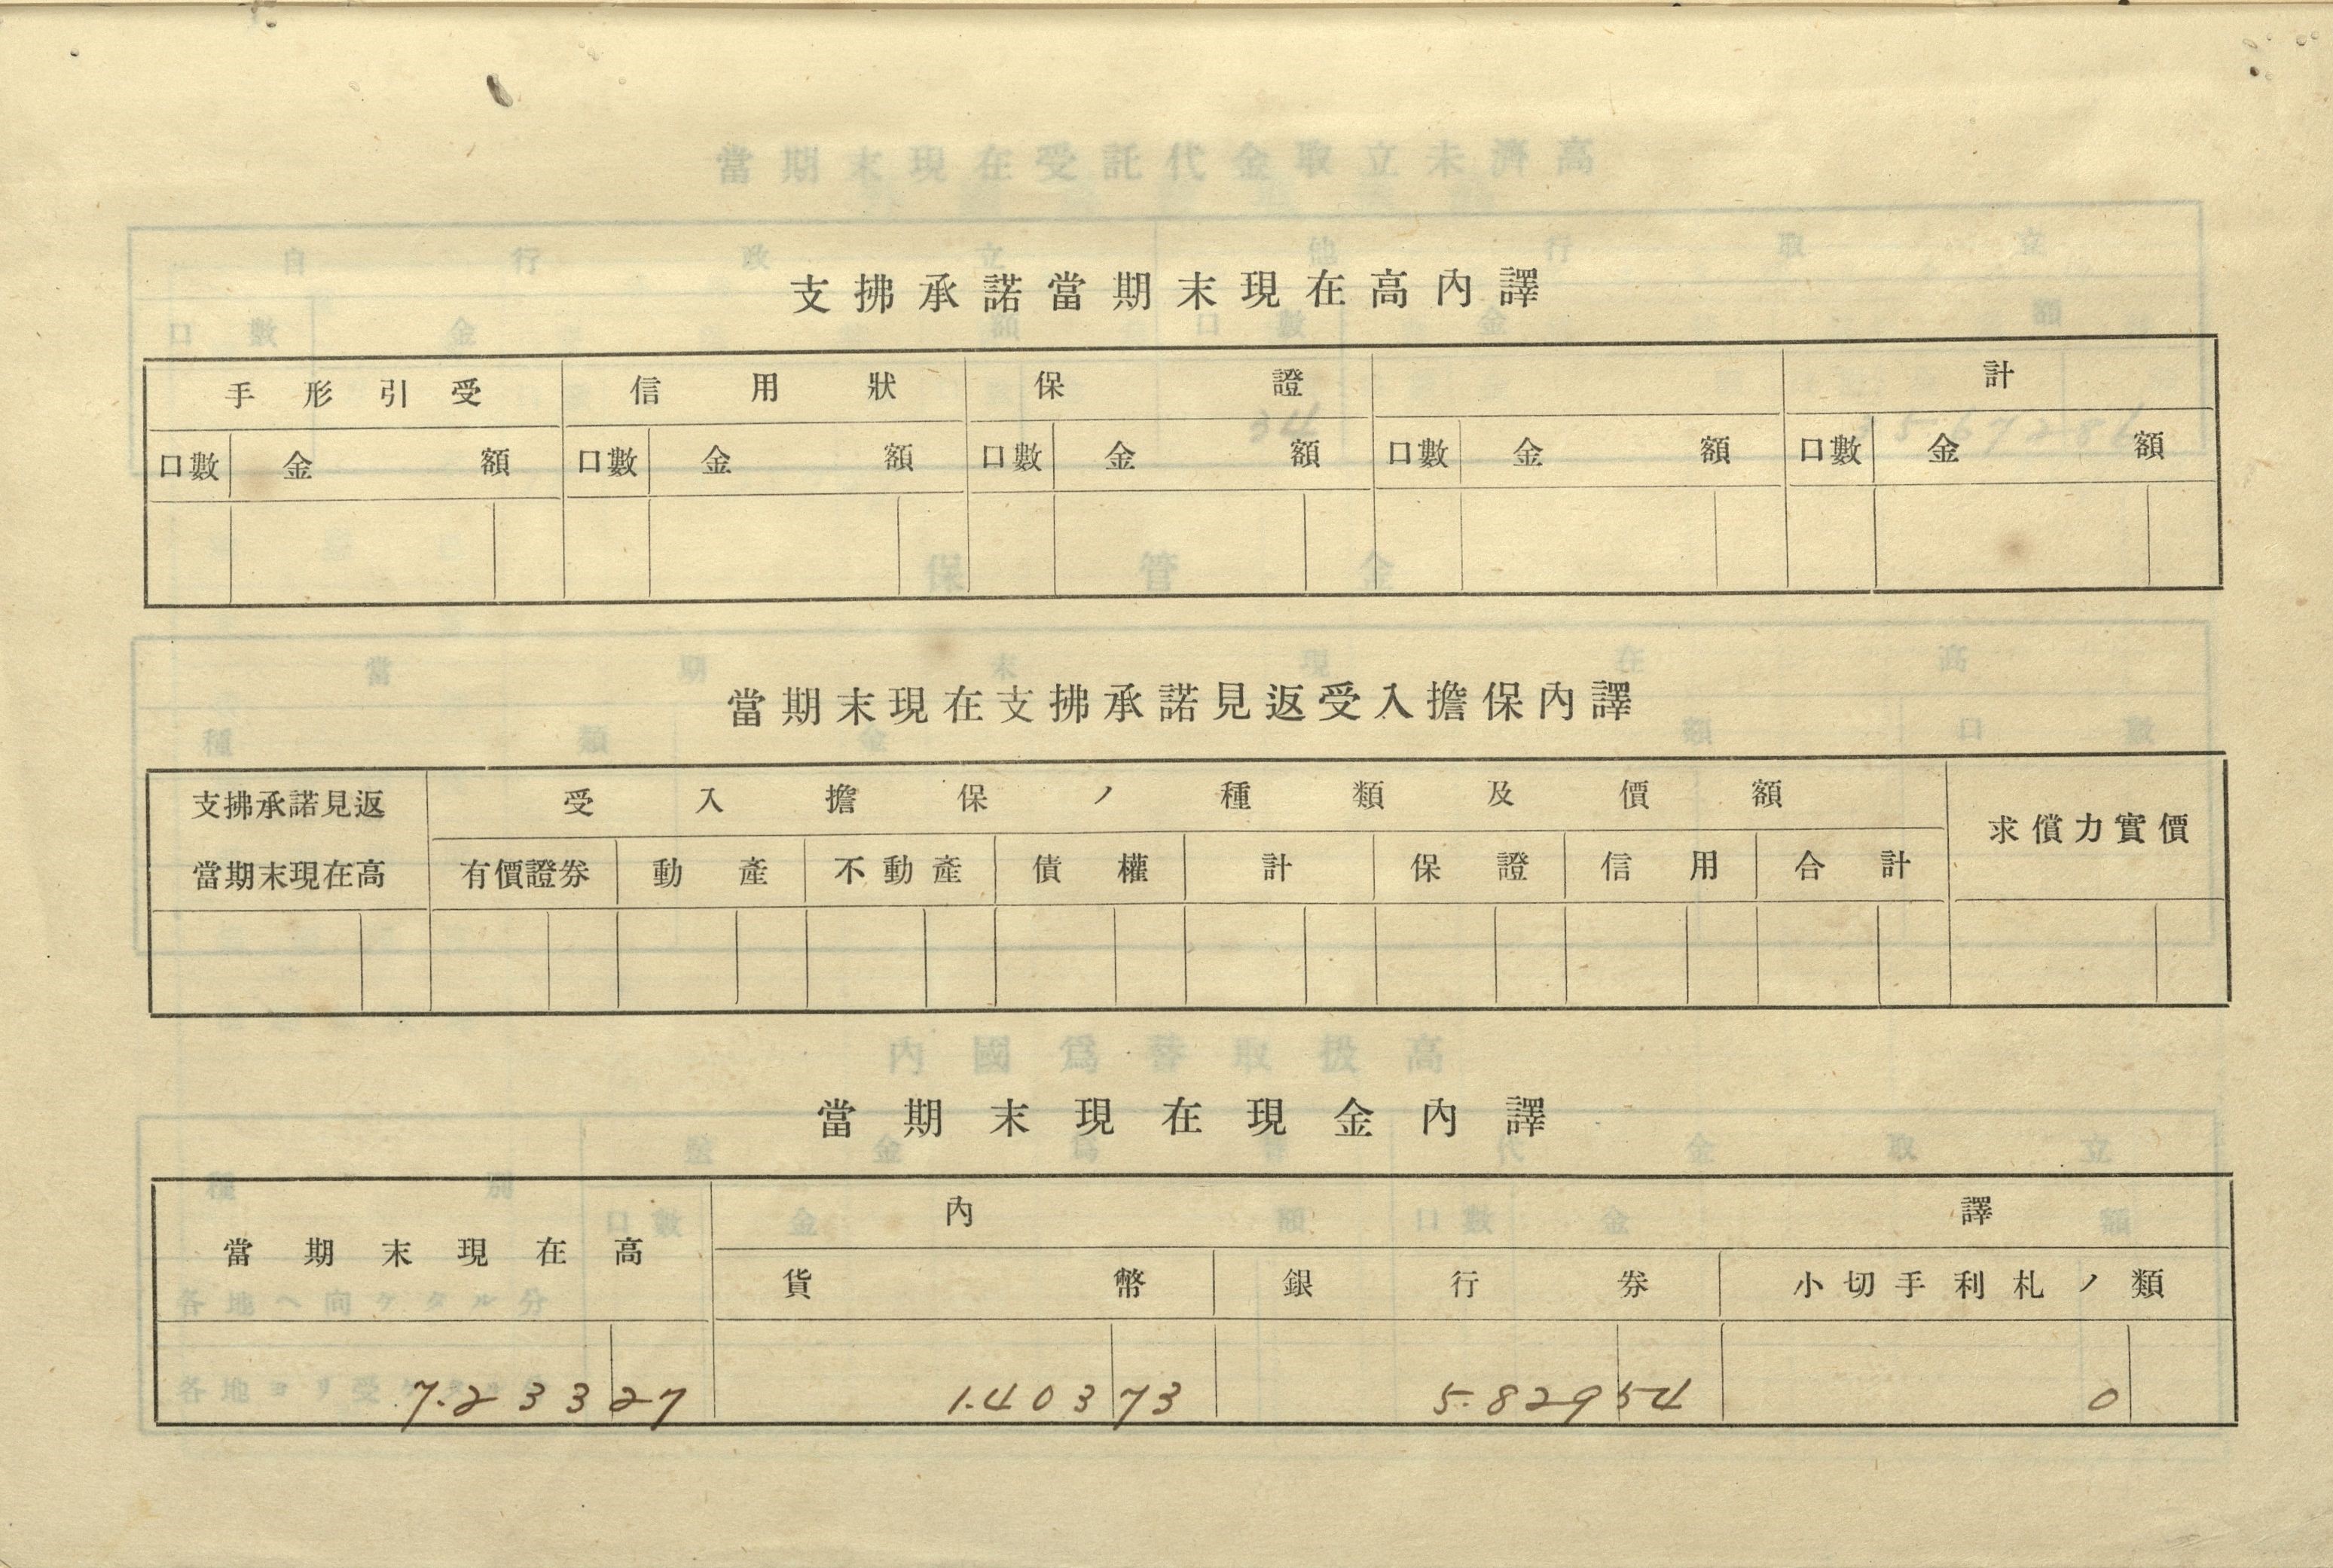 支拂承諾當期末現在高內譯
手形引受 信用狀 保證 計
口數 金額 口數 金額 口數 金額 口數 金額 口數 金額
當期末現在支拂承諾見返受入擔保內譯
支拂承諾見返當期末現在高 受入擔保ノ種類及價額 求償力實價
有價證券 動產 不動產 債權 計 保證 信用 合計
當期末現在現金內譯
當期末現在高 內譯
貨幣 銀行券 小切手利札ノ類
7.233 27 1.403 73 5.829 54 0